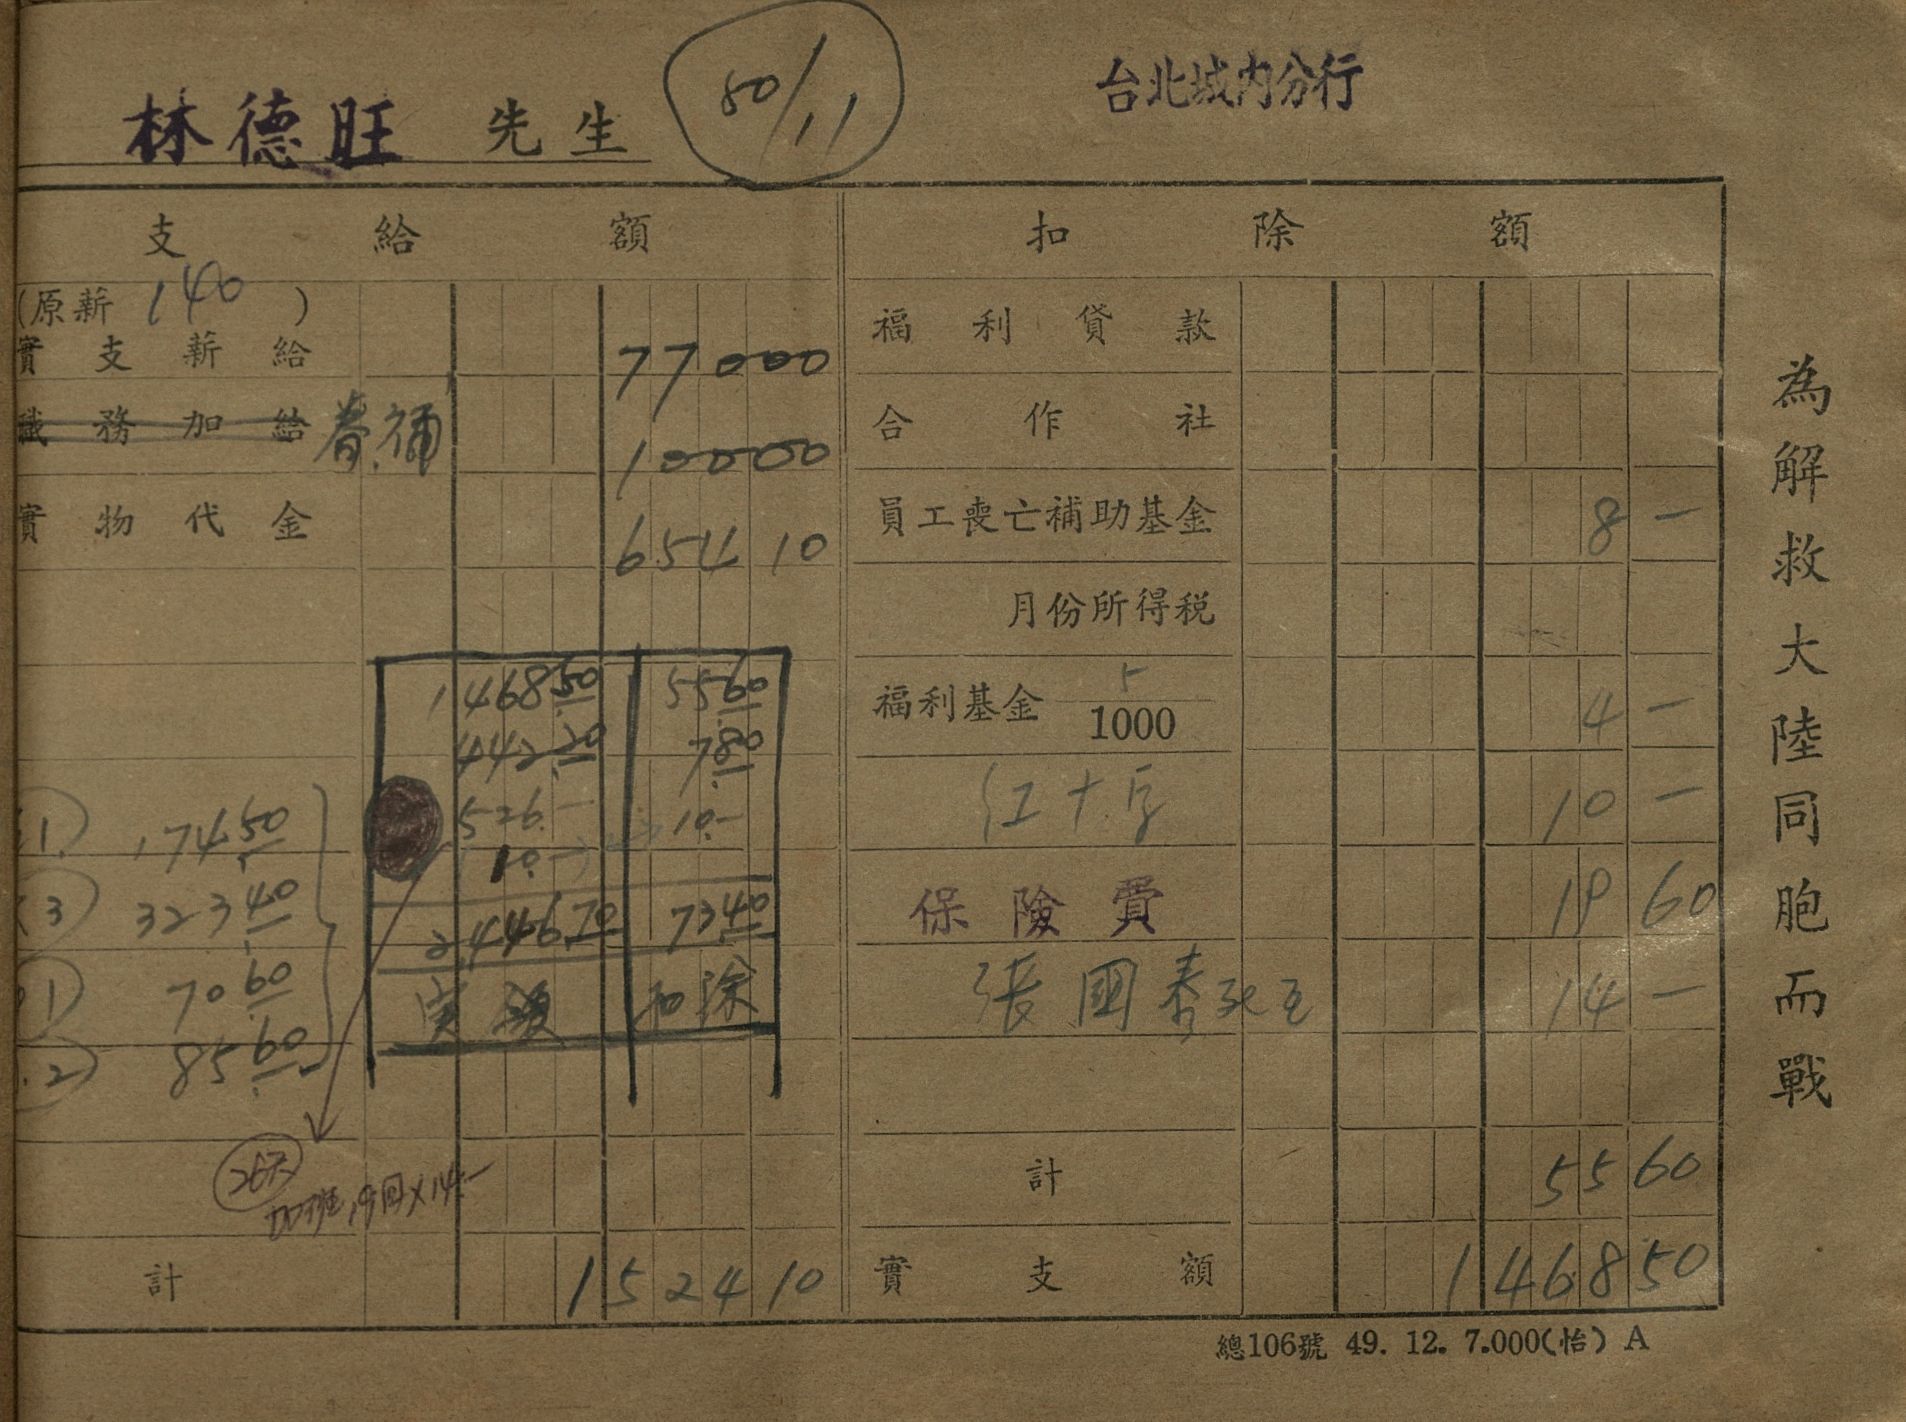 台北城内分行
林德旺 先生
50/11
支給額
扣除額
(原薪 140 )
實支薪給 77000
職務加給 眷補 10000
實物代金 654 10
福利貸款
合作社
員工喪亡補助基金 8 —
月份所得税
福利基金 5/1000 4 —
紅十字 10 —
保險費 19 60
張國泰死亡 14 —
計 55 60
實支額 1468 50
1) 174.50
3) 323.40
1) 70.60
2) 85.60
1468.50 55.60
442.20 7.80
526.— 10.—
10.—
2,446.70 73.40
実領 扣除
267
加班 19回×14.—
計 1524 10
為解救大陸同胞而戰
總106號 49. 12. 7.000(怡) A